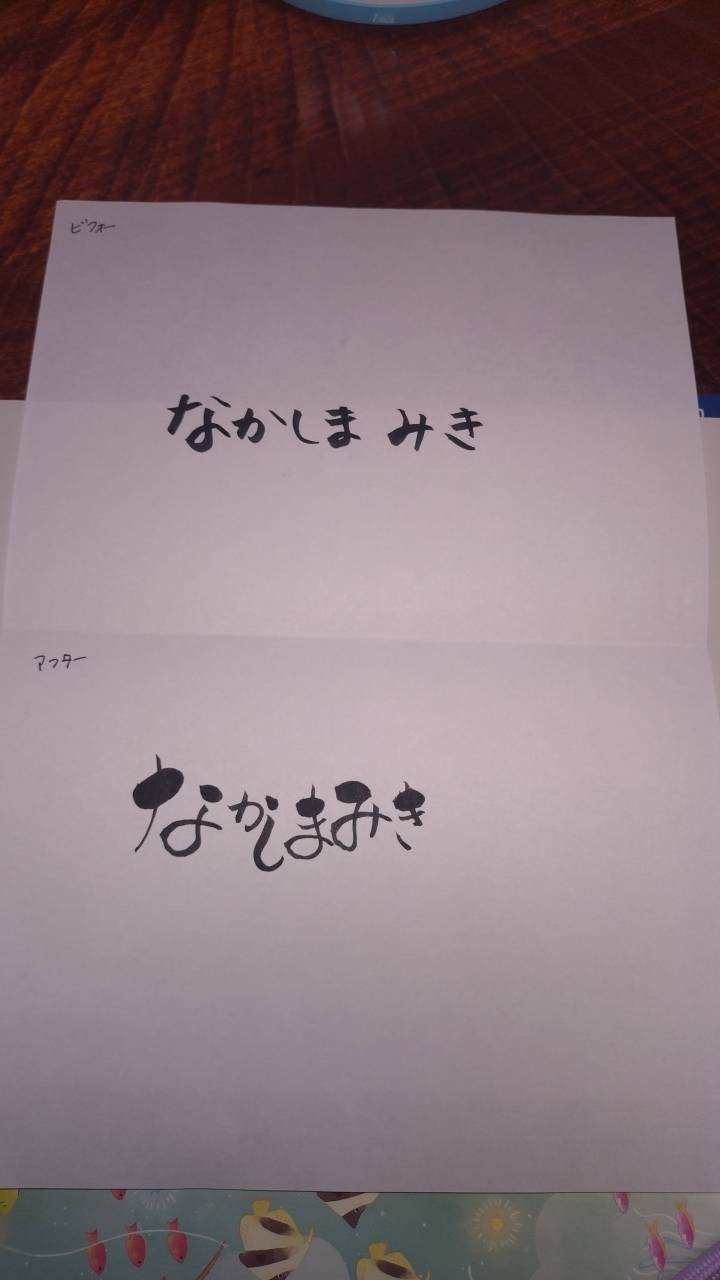 ビフォー
なかしま みき
アフター
なかしまみき